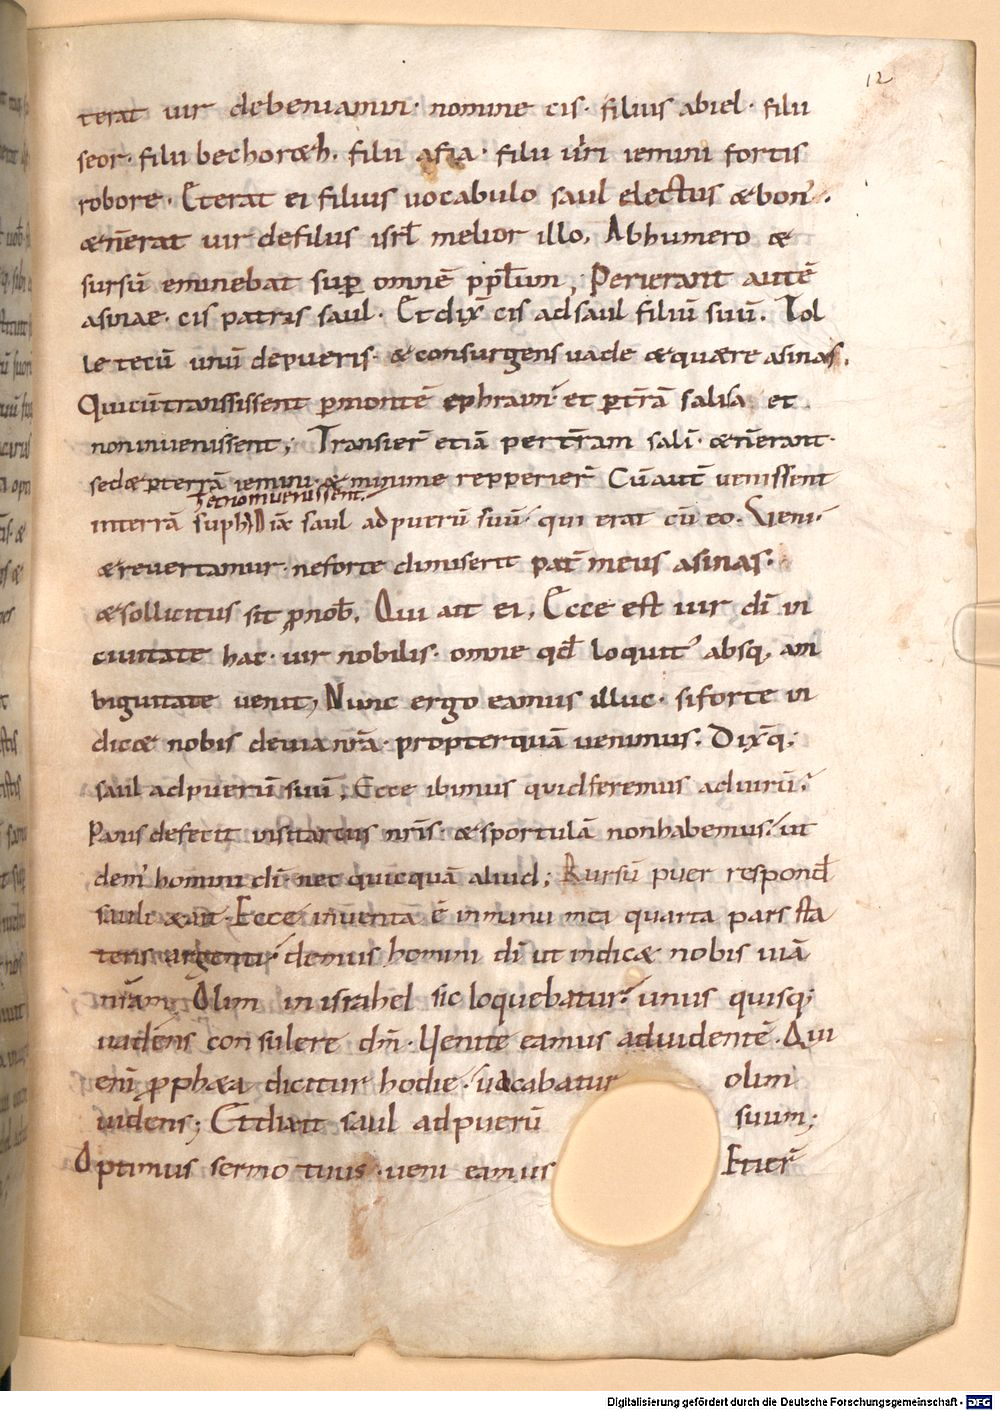 12
terat uir debeniamin· nomine cis· filius abiel· filii
seor· filii bechoræh. filii afia· filii uiri iemini fortis
robore· Eterat ei filius uocabulo saul electus æ bon᾽·
æ ñerat uir defiliis isrł melior illo, Abhumero æ
sursū eminebat sup̱ omnē pp̄lum, Perierant autē
asinae· cis patris saul· Et dix̄ cis adsaul filiū suū. Tol
le tecū unū depueris· æ consurgens uade æ quære asinas.
Quicūtranssissent p̱montē ephraim· et p̱tr̄ā salisa et
noninuenissent; Transier̄ etiā pertr̄am sali· æ ñerant·
sed æ p̱terrā iemini· æ minime repperier̄ Cū aut̄ uenissent
⁊ etnoninuenissent.
interrā suph Dix̄ saul adpuerū suū· qui erat cū eo. Veni·
æ reuertamur· neforte dimiserit pat̄ meus asinas·
æ sollicitus sit p̱nob̄. Qui ait ei, Ecce est uir di̅ in
ciuitate hac· uir nobilis· omne qđ loquit᾽ absq, am
biguitate uenit, Nunc ergo eamus illuc· siforte in
dicæ nobis deuia nr̄a· propterquā uenimus. Dix̄q;
saul adpuerū suū, Ecce ibimus quidferemus aduirū·
Panis defecit insitarciis nr̄is· æ sportulā nonhabemus· ut
dem᾽ homini di̅· nec quicquā aliud; Rursū puer respond̄
sauli æ ait· Ecce inuenta ē inmanu mea quarta pars sta
teris argenti· demus homini di̅ ut indicæ nobis uiā
nr̄am, Olim in israhel sic loquebatur· unus quisq;
uadens consulere dn̄· Uenite eamus aduidentē· Qui
eni̅ p̱phæa dicitur hodie· uocabatur olim
uidens; Etdixit saul adpuerū suum;
Optimus sermo tuus· ueni eamus Etier̄
Digitalisierung gefördert durch die Deutsche Forschungsgemeinschaft - DFG